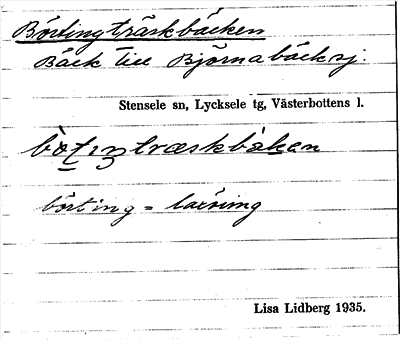 Börtingträskbäcken
Bäck till Björnabäcksj.
Stensele sn, Lycksele tg, Västerbottens l.
börting = laxöring
Lisa Lidberg 1935.